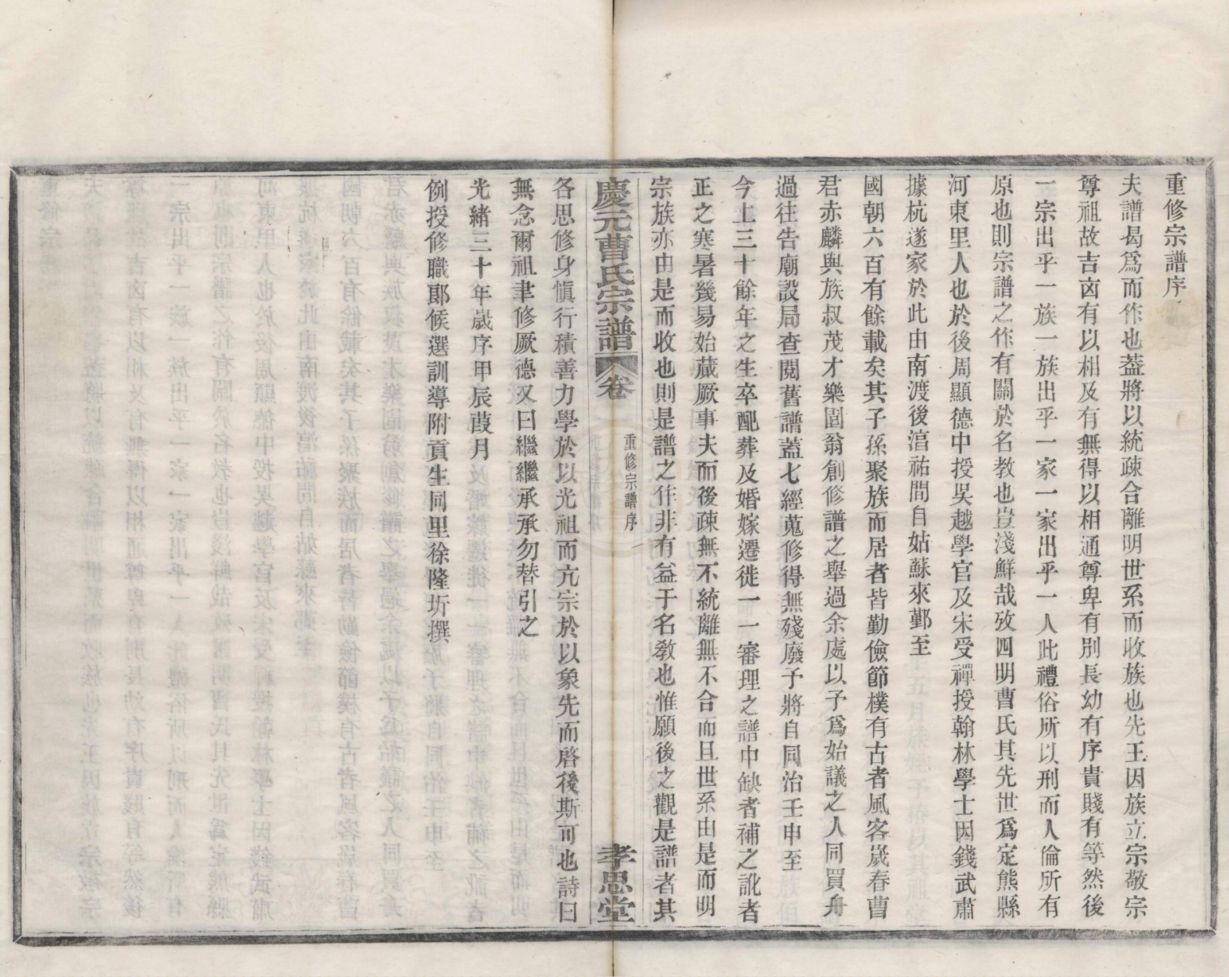 重修宗譜序
夫譜曷爲而作也葢將以統疎合離明世系而收族也先王因族立宗敬宗
尊祖故吉凶有以相及有無得以相通尊卑有別長幼有序貴賤有等然後
一宗出乎一族一族出乎一家一家出乎一人此禮俗所以刑而人倫所有
原也則宗譜之作有關於名教也豈淺鮮哉攷四明曹氏其先世爲定熊縣
河東里人也於後周顯德中授吳越學官及宋受禪授翰林學士因錢武肅
據杭遂家於此由南渡後湻祐間自姑蘇來鄞至
國朝六百有餘載矣其子孫聚族而居者皆勤儉節樸有古者風客歲春曹
君赤麟與族叔茂才樂園翁創修譜之舉過余處以予爲始議之人同買舟
過往告廟設局查閱舊譜葢七經蒐修得無殘廢予將自同治壬申至
今上三十餘年之生卒配葬及婚嫁遷徙一一審理之譜中缺者補之訛者
正之寒暑幾易始蕆厥事夫而後疎無不統離無不合而且世系由是而明
宗族亦由是而收也則是譜之作非有益于名敎也惟願後之觀是譜者其
慶元曹氏宗譜 卷 重修宗譜序 孝思堂
各思修身愼行積善力學於以光祖而亢宗於以象先而啓後斯可也詩曰
無念爾祖聿修厥德又曰繼繼承承勿替引之
光緒三十年歲序甲辰葭月
例授修職郞候選訓導附貢生同里徐隆圻撰